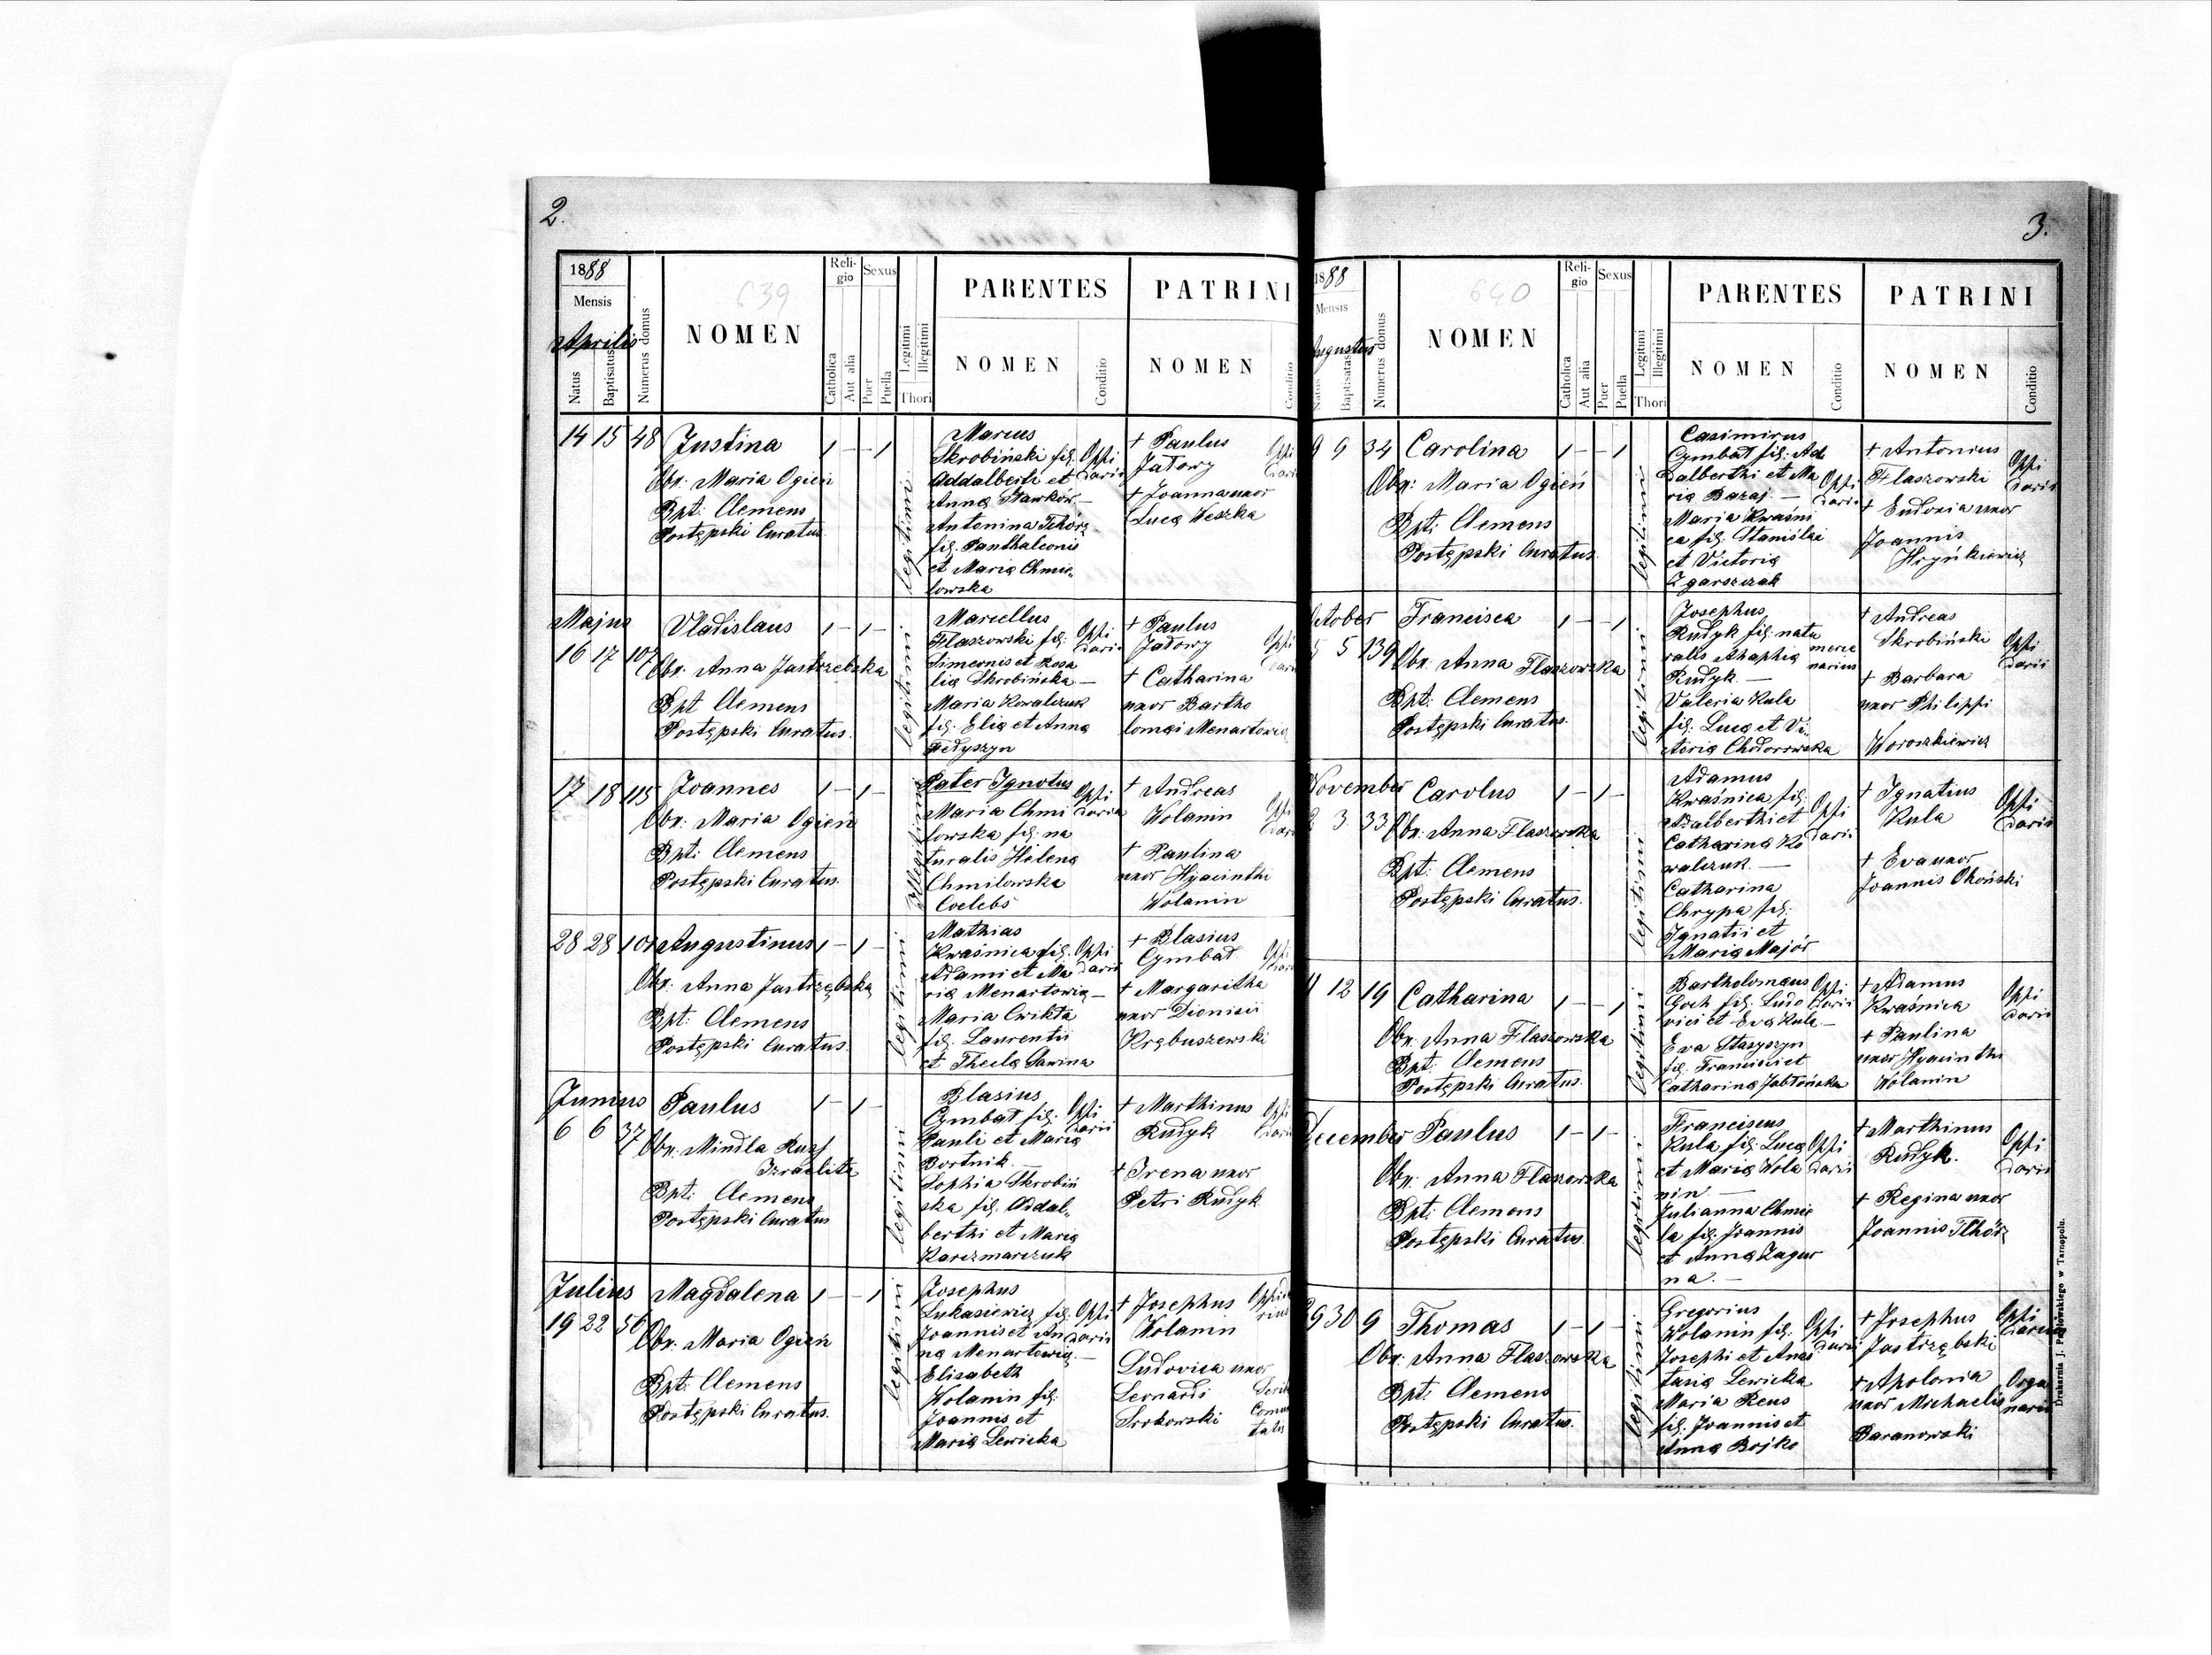 2.
1888
Mensis
Aprilis
Natus
Baptisatus
Numerus domus
639
NOMEN
Religio
Catholica
Aut alia
Sexus
Puer
Puella
Legitimi
Illegitimi
Thori
PARENTES
NOMEN
Conditio
PATRINI
NOMEN
Conditio
14 15 48 Justina 1 - - 1
Obs. Maria Ogień
Bpt: Clemens
Postępski Curatus.
legitimi
Marcus
Skrobiński fil:
Addalberti et
Anna Hawków. -
Antonina Tchórz
fil. Panthaleonis
et Maria Chmie„
lowska
Oppi
darii
+ Paulus
Jatowy
+ Joanna uxor
Luca Weszka
Oppi
Majus
16 17 107 Vladislaus 1 - 1 -
Obs. Anna Jastrzebska
Bpt Clemens
Postępski Curatus.
legitimi
Marcellus
Flaszowski fil:
Simeonis et Rosa
lia Skrobińska -
Maria Kowalczuk
fil. Elia et Anna
Fedyszyn
Oppi
darii
+ Paulus
Jadowy
+ Catharina
uxor Bartho
lomæi Menartowicz
Oppi
17 18 115 Joannes 1 - 1 -
Obs: Maria Ogień
Bpt: Clemens
Postępski Curatus.
Illegitimi
Pater Ignotus
Maria Chmi
lowska fil. na
turalis Helena
Chmilowska
Coelebs
Oppi
daria
+ Andreas
Wolanin
+ Paulina
uxor Hyacinthi
Wolanin
28 28 101 Augustinus 1 - 1 -
Obs. Anna Jastrzębska
Bpt: Clemens
Postępski Curatus.
legitimi
Mathias
Kwaśnica fil.
Adami et Ma
ria Menartowicz -
Maria Cwikta
fil. Laurentii
et Thecla Sawina
Oppi
darii
+ Blasius
Cymbał
+ Margaritha
uxor Dionisii
Krębuszewski
Junius
6 6 37 Paulus 1 - 1 -
Obs. Mindla
Izraelita
Bpt: Clemens
Postępski Curatus
legitimi
Blasius
Cymbał fil.
Pauli et Maria
Bortnik -
Sophia Skrobiń
ska fil. Addal„
berthi et Maria
Karczmarczuk
Oppi
darii
+ Marthinus
Rudyk
+ Irena uxor
Petri Rudyk
Julius
19 22 56 Magdalena 1 - - 1
Obs. Maria Ogień
Bpt: Clemens
Postępski Curatus.
legitimi
Josephus
Lukasiewicz fil.
Joannis et An
na Menartowicz. -
Elisabeth
Wolanin fil.
Joannis et
Maria Lewicka
Oppi
darii
+ Josephus
Wolanin
Ludovica uxor
Leonardi
Srokowski
3.
1888
Mensis
Augustus
Natus
Baptisatus
Numerus domus
640
NOMEN
Religio
Catholica
Aut alia
Sexus
Puer
Puella
Legitimi
Illegitimi
Thori
PARENTES
NOMEN
Conditio
PATRINI
NOMEN
Conditio
9 9 34 Carolina 1 - - 1
Obs: Maria Ogień
Bpt: Clemens
Postępski Curatus.
legitimi
Casimirus
Cymbał fil: Ad
dalberthi et Ma
ria Bazaj -
Maria Kwaśni
ca fil. Stanislai
et Victoria
Zgarszczak
Oppi
darii
+ Antonius
Flaszowski
+ Eudoxia uxor
Joannis
Hryńkiewicz
Oppi
darii
October
5 5 139 Francisca 1 - - 1
Obs. Anna Flaszowska
Bpt: Clemens
Postępski Curatus.
legitimi
Josephus
Rudyk fil. natu
ralis Ahaphia
Rudyk. -
Valeria Kula
fil. Luca et Vi„
ctoria Chodorowska
merce
narius
+ Andreas
Skrobiński
+ Barbara
uxor Philippi
Woroszkiewicz
Oppi
darii
November
3 33 Carolus 1 - 1 -
Obs. Anna Flaszowska
Bpt: Clemens
Postępski Curatus.
legitimi
Adamus
Kwaśnica fil.
Adalberthi et
Catharina Ko
walczuk. -
Catharina
Chrypa fil.
Ignatii et
Maria Majór
Oppi
darii
+ Ignatius
Kula
+ Eva uxor
Joannis Okoński
Oppi
darii
11 12 19 Catharina 1 - - 1
Obs. Anna Flaszowska
Bpt: Clemens
Postępski Curatus.
legitimi
Bartholomæus
Goch fil. Ludo
vici et Eva Kula -
Eva Stasyszyn
fil. Francisci et
Catharina Jabłońska
Oppi
darii
+ Adamus
Kwaśnica
+ Paulina
uxor Hyacinthi
Wolanin
Oppi
darii
December Paulus 1 - 1 -
Obs. Anna Flaszowska
Bpt: Clemens
Postępski Curatus.
legitimi
Franciscus
Kula fil. Luca
et Maria Wola
nin -
Julianna Chmie
la fil. Joannis
et Anna Zagur
na. -
Oppi
darii
+ Marthinus
Rudyk.
+ Regina uxor
Joannis Tchórz
Oppi
darii
29 30 9 Thomas 1 - 1 -
Obs. Anna Flaszowska
Bpt: Clemens
Postępski Curatus.
legitimi
Gregorius
Wolanin fil.
Josephi et Anas
tasia Lewicka
Maria Reus
fil. Joannis et
Anna Bojko
Oppi
darii
+ Josephus
Jastrzębski
+ Apolonia
uxor Michaelis
Baranowski
Oppi
darii
Orga
narii
Drukarnia J. Pawłowskiego w Tarnopolu.